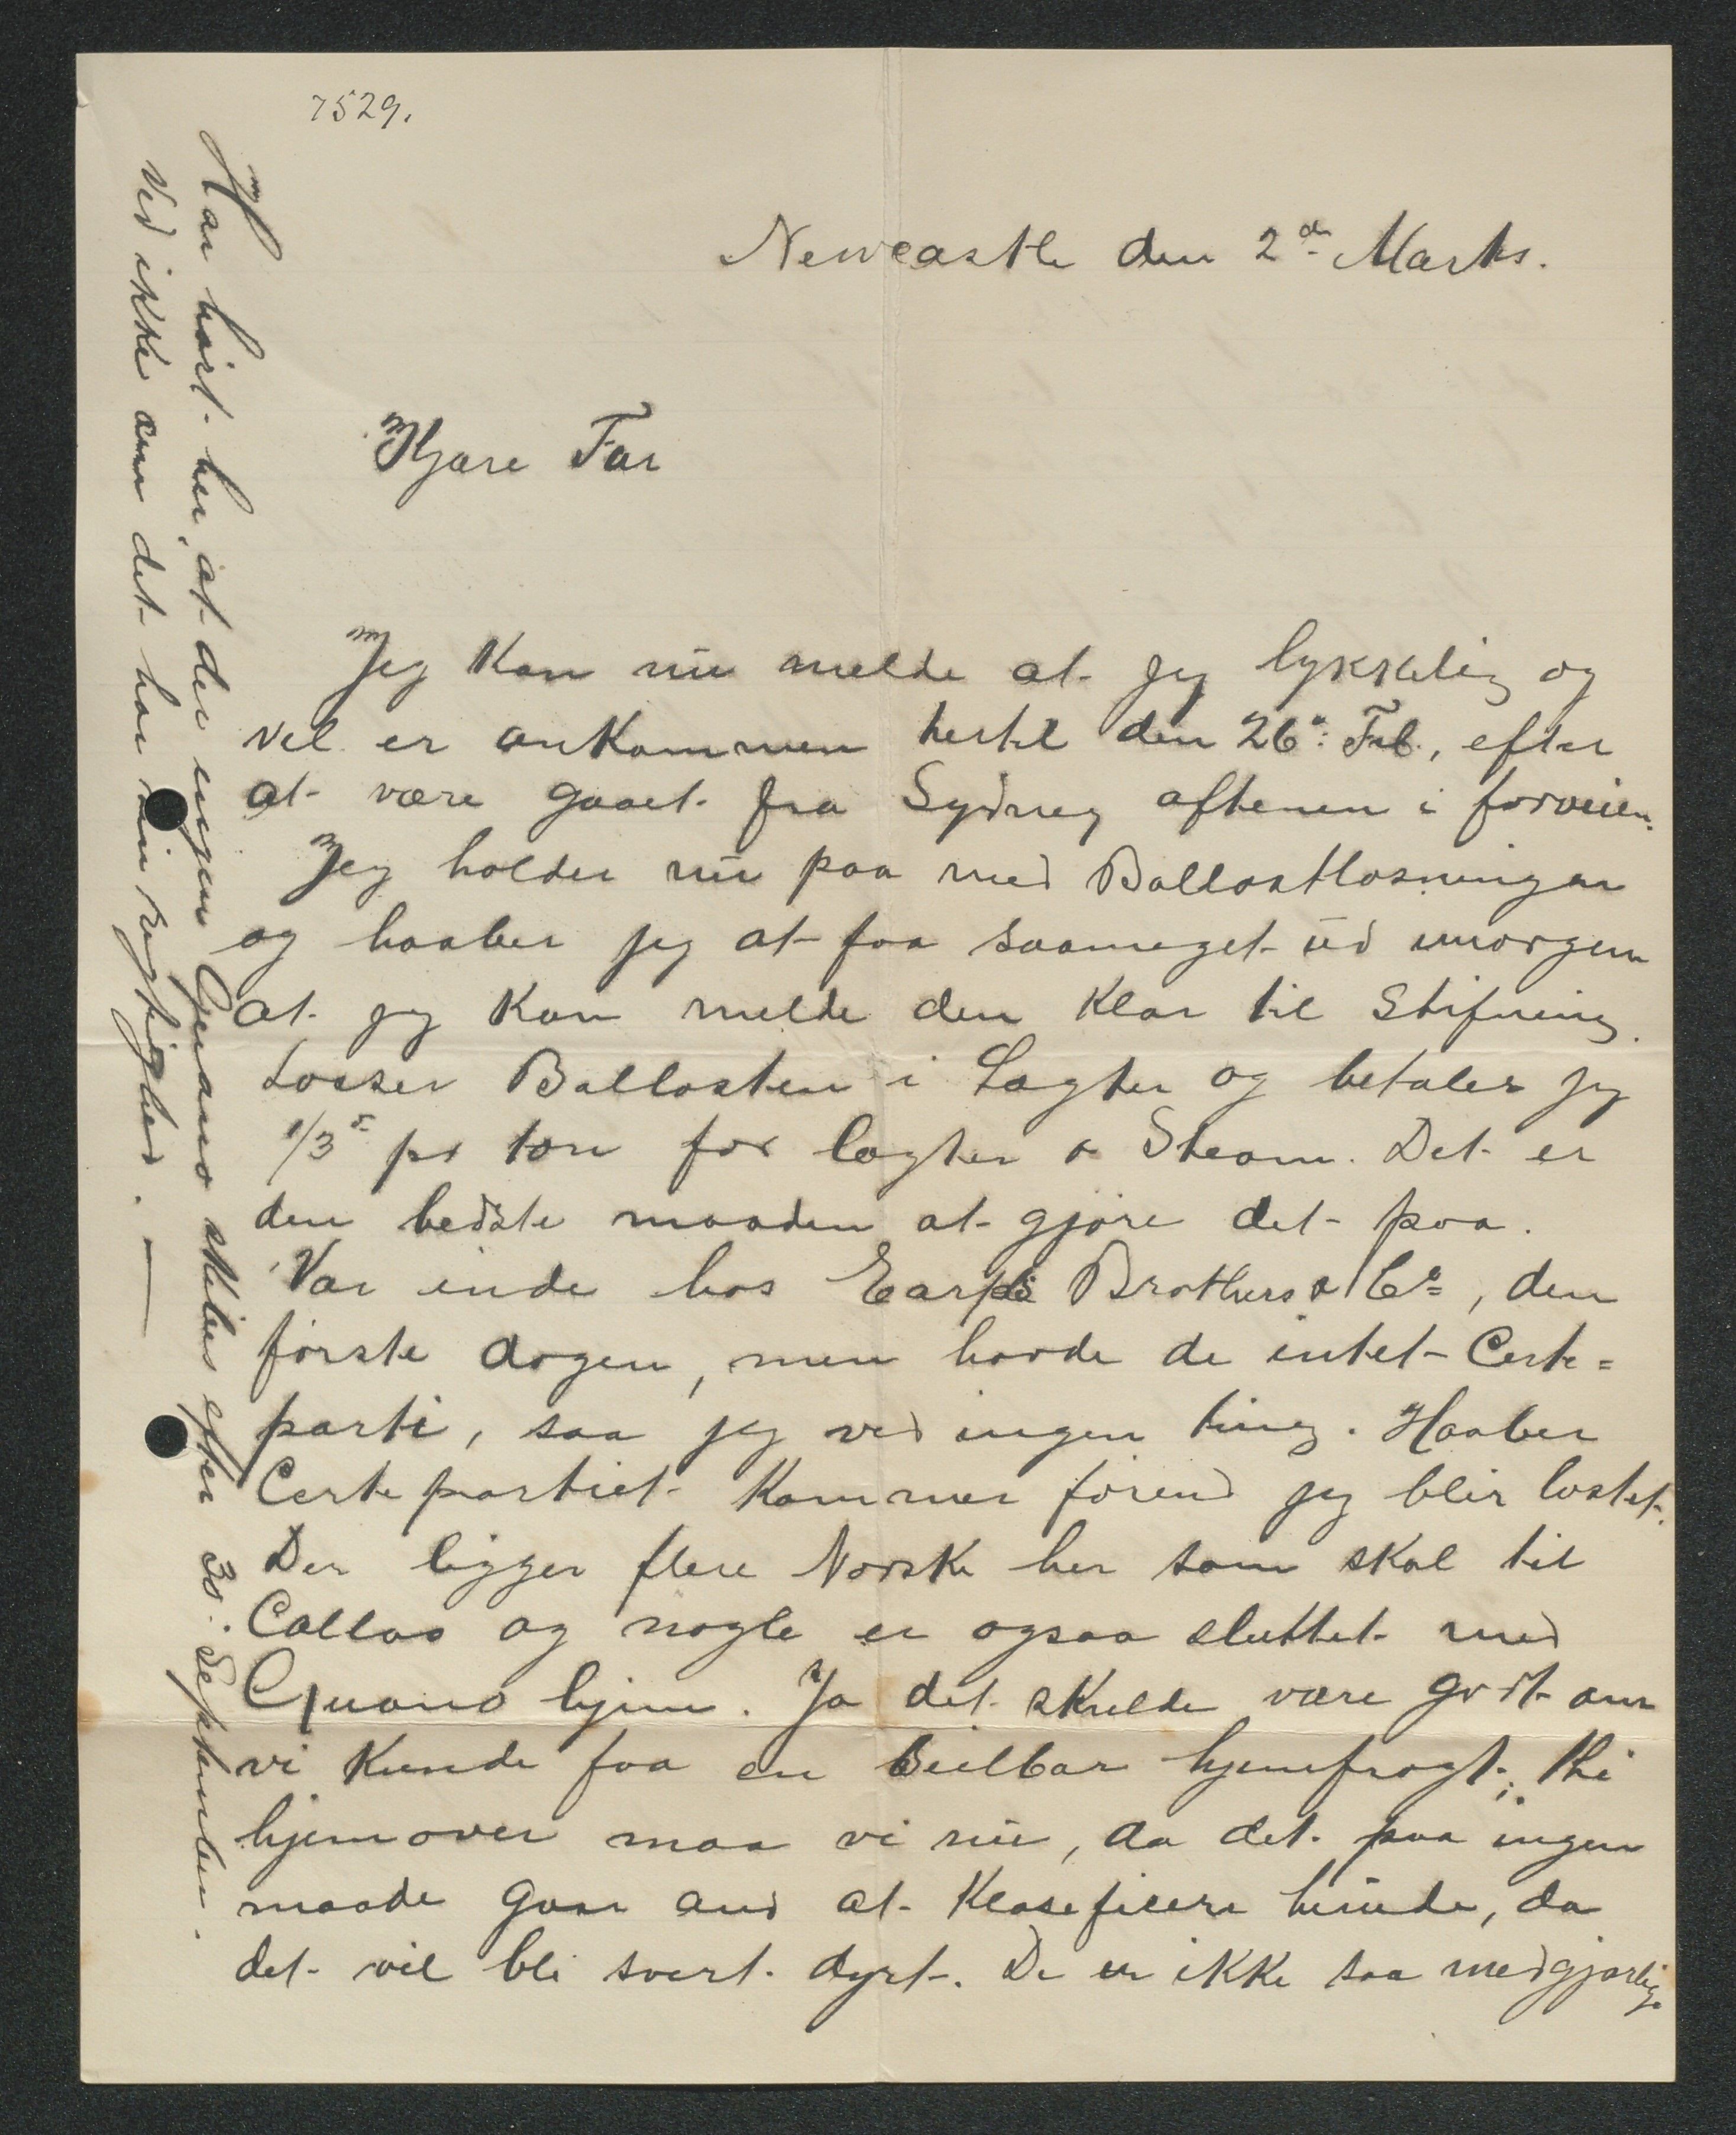 7529.
Newcastle den 2den Marts.
Kjære Far
Jeg kan nu melde at jeg lykkelig og
vel er ankommen hertil den 26de Feb., efter
at være gaaet fra Sydney aftenen i forveien.
Jeg holder nu paa med Ballastlosningen
og haaber jeg at faa saameget ud imorgen
at jeg kan melde den klar til Stifning.
Losser Ballasten i Lægter og betaler jeg
1/3 pr ton for lægter & Steam. Det er
den bedste maaden at gjøre det paa.
Var inde hos Earps Brothers & Co, den
første dagen, men havde de intet Certe=
parti, saa jeg ved ingen ting. Haaber
Certepartiet kommer førend jeg blir losset.
Der ligger flere Norske her som skal til
Callao og nogle er ogsaa sluttet med
Guano hjem. Ja det skulde være godt om
vi kunde faa en beilbar hjemfragt; thi
hjemover maa vi nu, da det paa ingen
maade gaar and at klasefisere herude, da
det vil bli svert dyrt. De er ikke saa medgjørlig.
Har hørt her, at der ingen Guano skibes efter 30. September.
Ved ikke om det har sin rigtighed. —